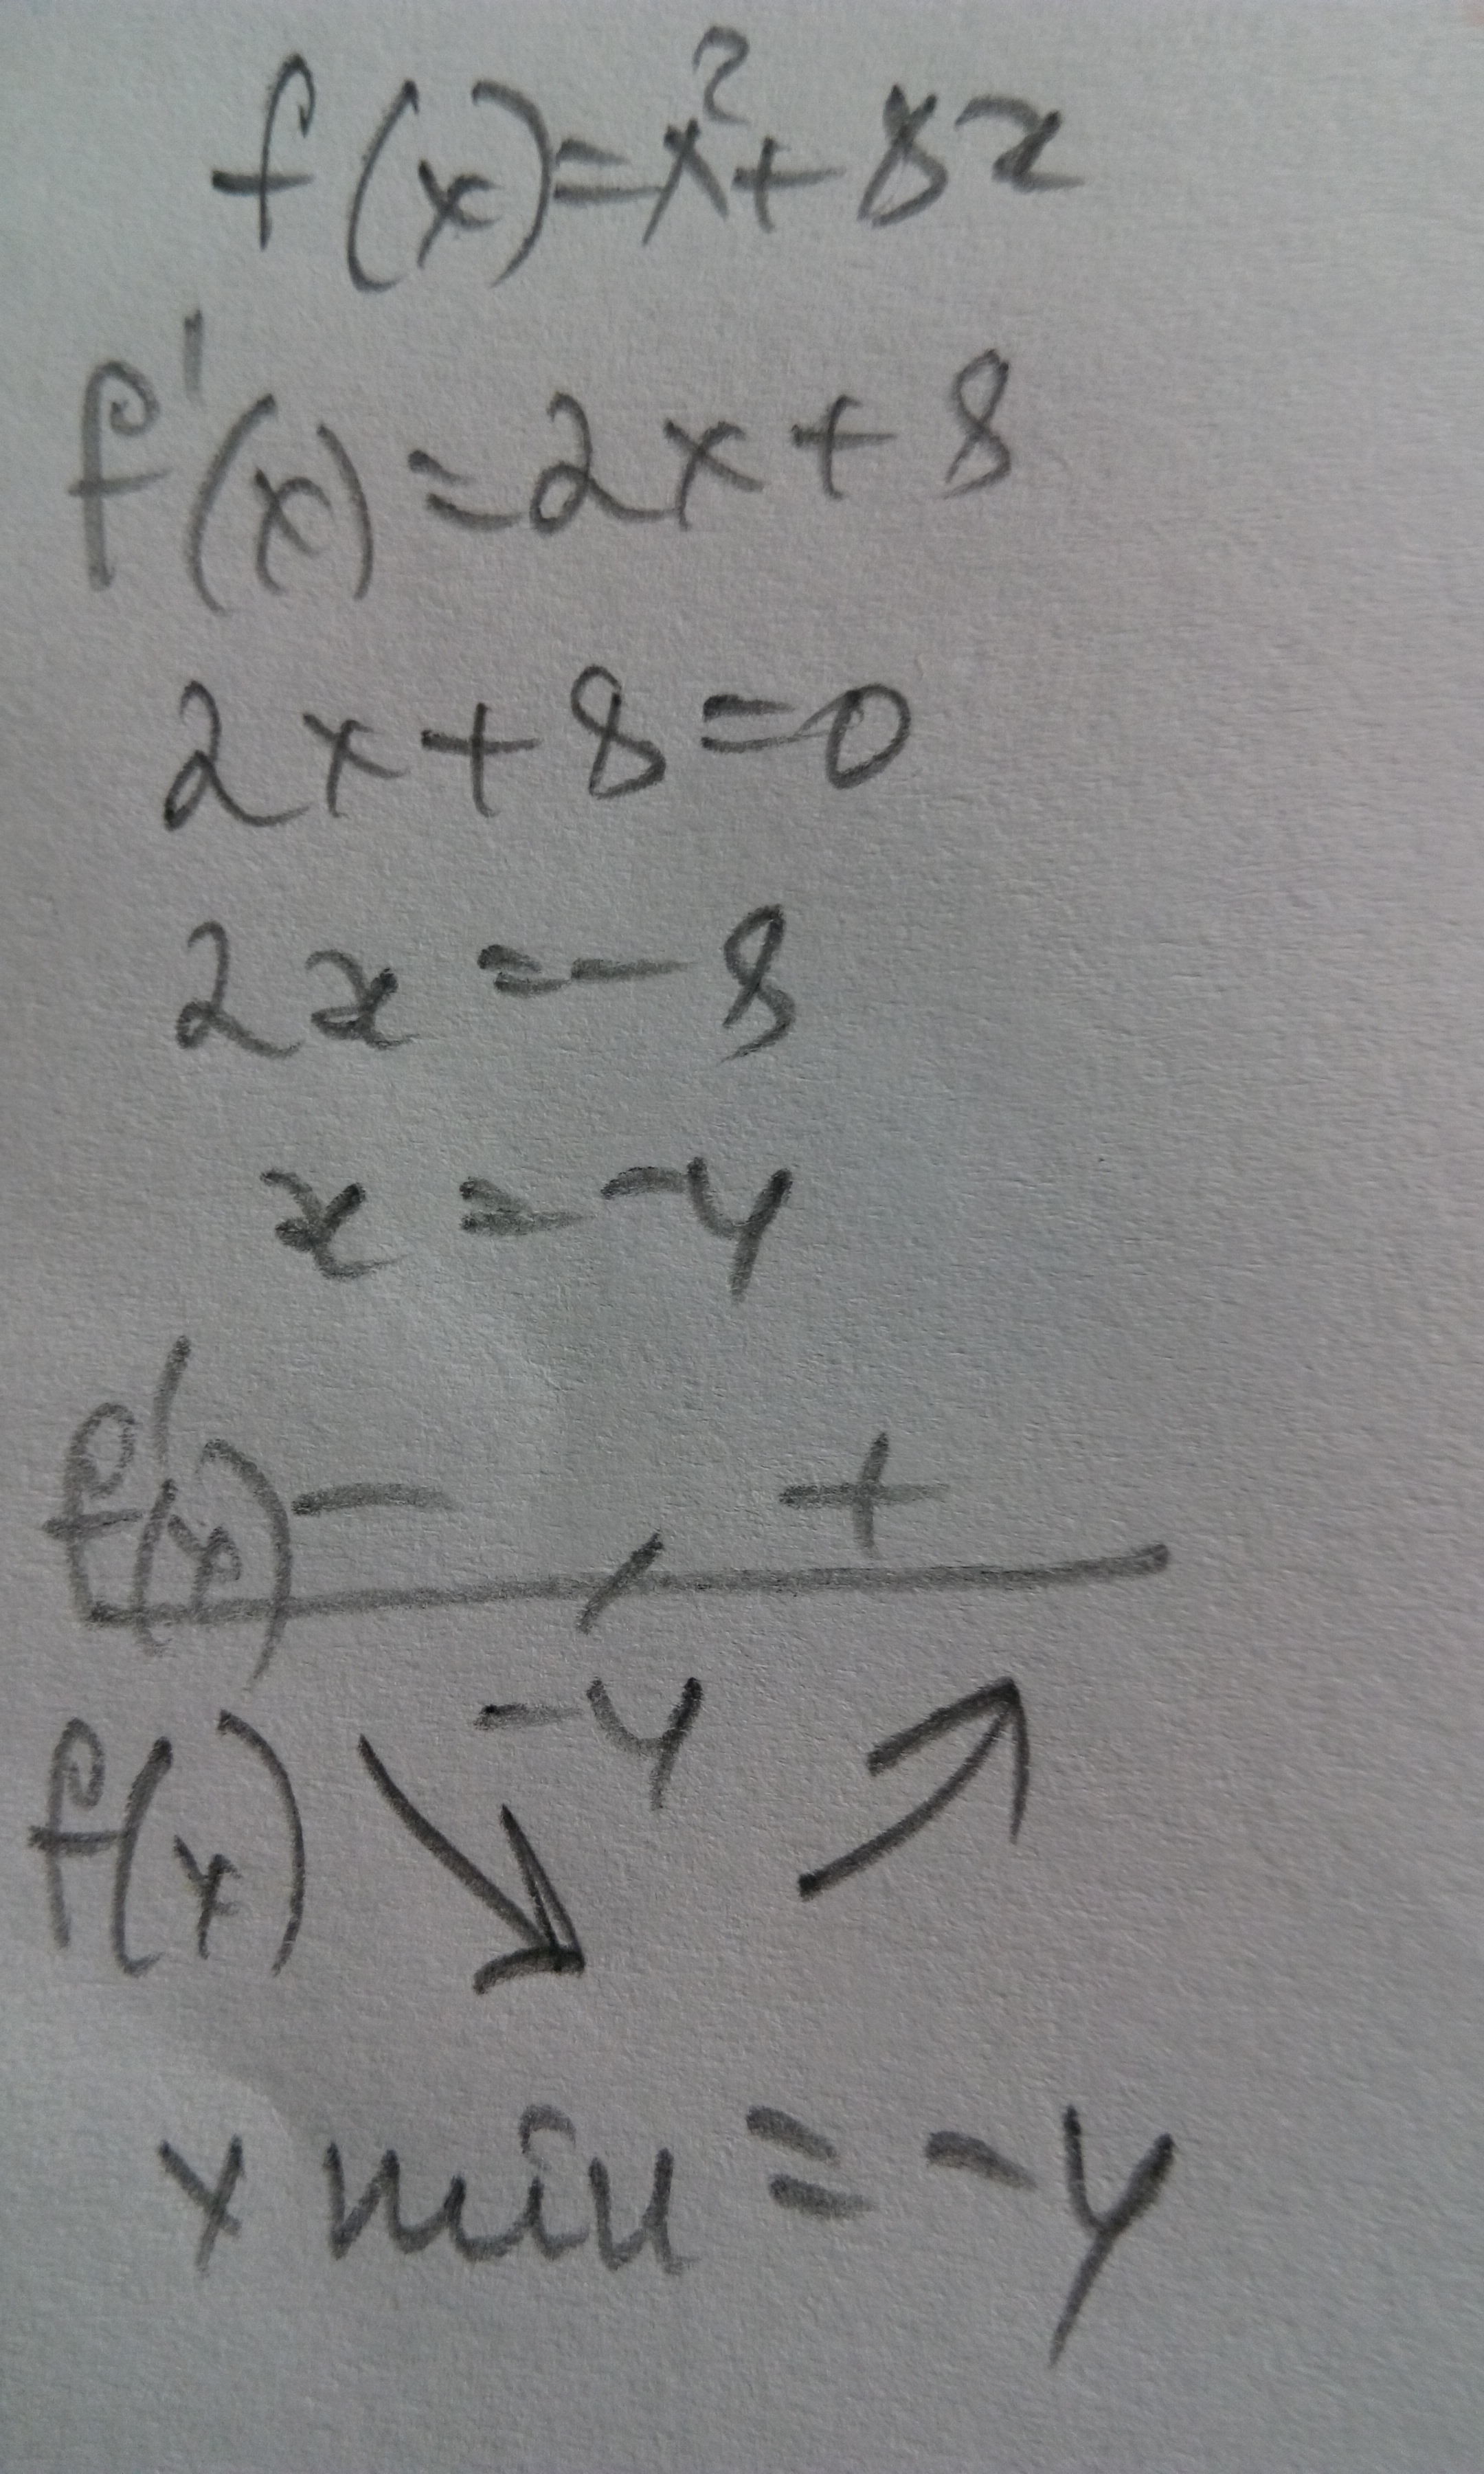 f(x)=x²+8x
f'(x)=2x+8
2x+8=0
2x=-8
x=-4
f'(x) - +
-4
f(x) ↘ ↗
x min=-4